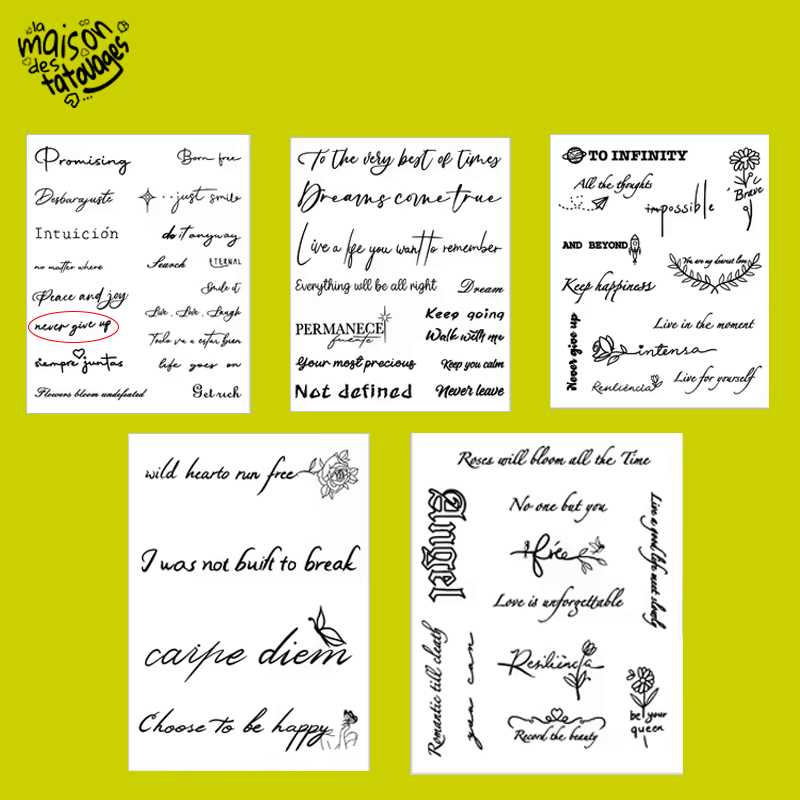 la
maison
des
tatouages
Promising
Born free
Desbarajuste
just smile
Intuición
do it anyway
no matter where
Search
ETERNAL
Peace and joy
Smile it
never give up
Live, Love, Laugh
Todo va a estar bien
siempre juntas
life goes on
Flowers bloom undefeated
Get rich
To the very best of times
Dreams come true
Live a life you want to remember
Everything will be all right
Dream
PERMANECE
fuerte
Keep going
Walk with me
Your most precious
Keep you calm
Not defined
Never leave
TO INFINITY
All the thoughts
impossible
Brave
AND BEYOND
You are my dearest love
Keep happiness
Never give up
Live in the moment
intensa
Resiliencia
Live for yourself
wild hearto run free
I was not built to break
carpe diem
Choose to be happy
Roses will bloom all the Time
Angel
No one but you
free
Love is unforgettable
Live a good life meet slowly
Romantic till death
you can
Resiliencia
Record the beauty
be your
queen